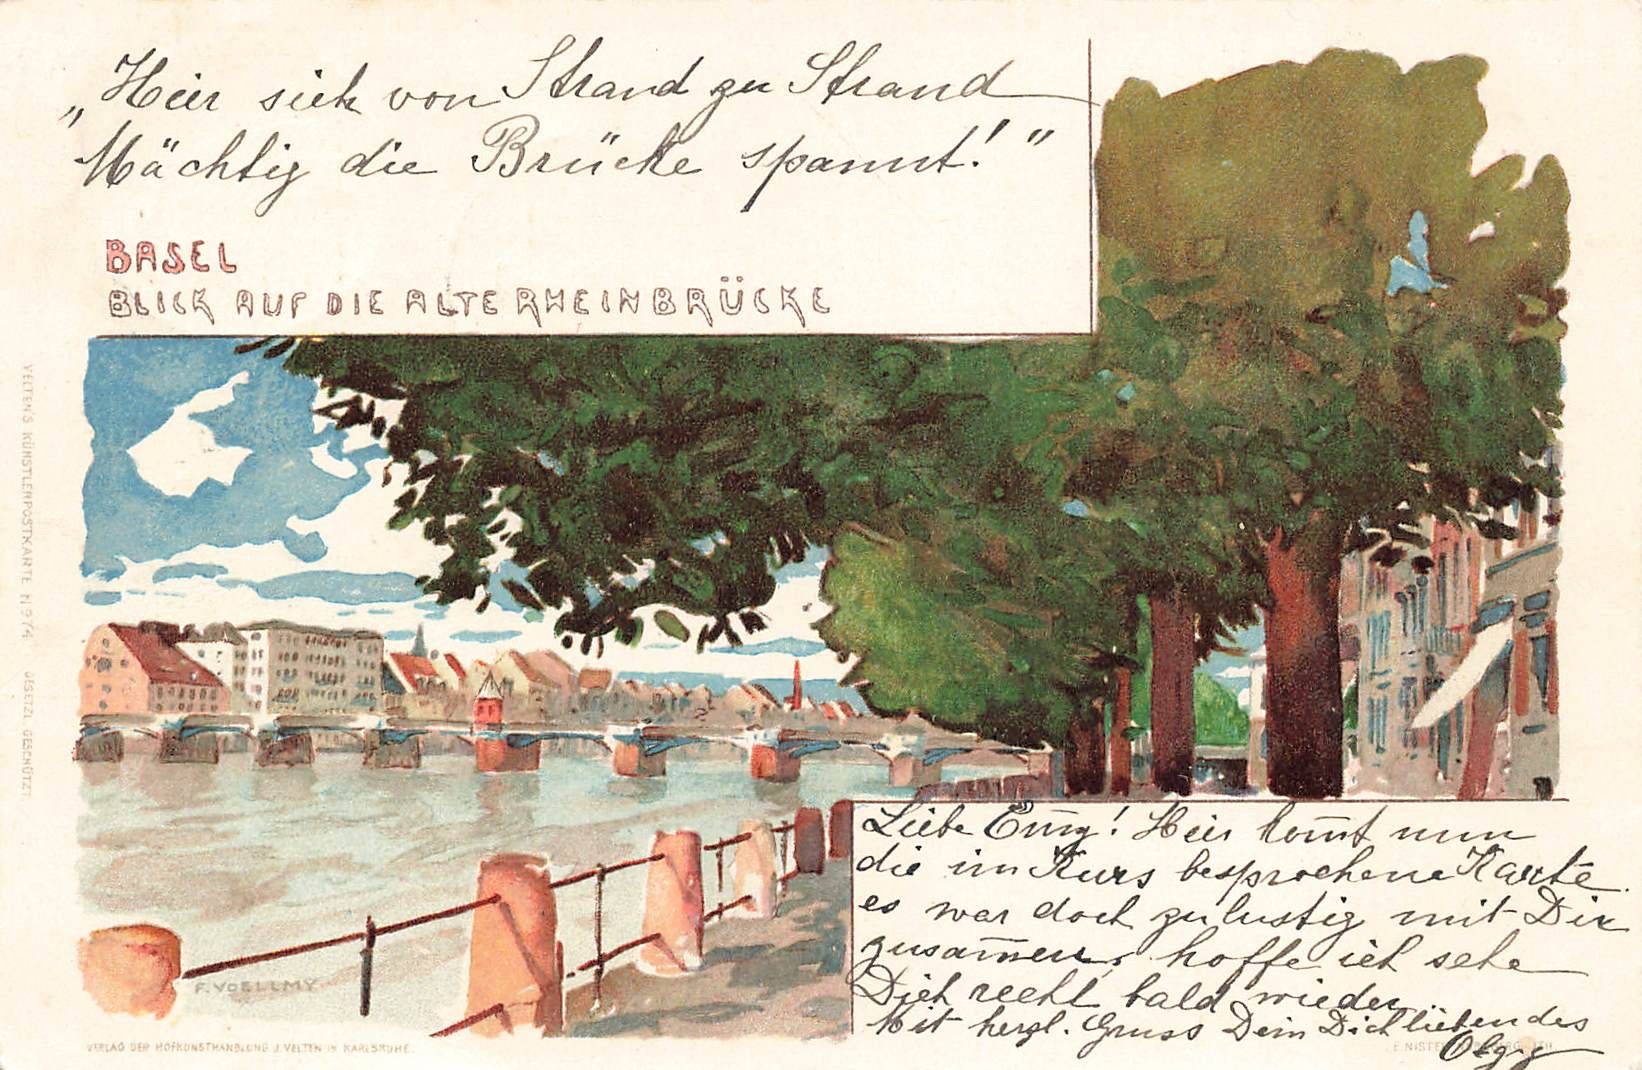 „Hier sich von Strand zu Strand
Mächtig die Brücke spannt!"
BASEL
BLICK AUF DIE ALTE RHEINBRÜCKE
VELTEN'S KÜNSTLERPOSTKARTE N 974 GESETZL. GESCHÜTZT
Liebe Em̄y! Hier kom̄t nun
die im Kurs besprochene Karte.
es war doch zu lustig mit Dir
zusam̄en, hoffe ich sehe
Dich recht bald wieder
Mit herzl. Gruss Dein Dich liebendes
Olgy
F. VOELLMY
VERLAG DER HOFKUNSTHANDLUNG J. VELTEN IN KARLSRUHE.
E. NISTER